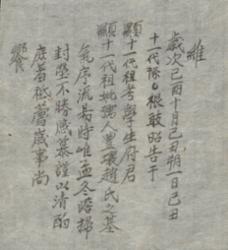 維
歲次己酉十月己丑朔一日己丑
十一代孫 根敢昭告于
顯十一代祖考學生府君
顯十一代祖妣孺人豊壤趙氏之墓
氣序流易時惟孟冬瞻掃
封塋不勝感慕謹以清酌
庶羞祗薦歲事尚
饗